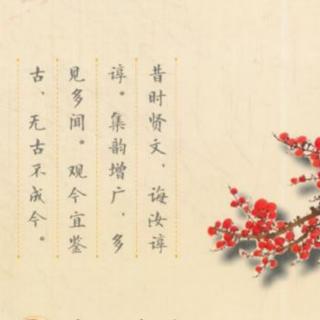 昔时贤文，诲汝谆
谆。集韵增广，多
见多闻。观今宜鉴
古，无古不成今。